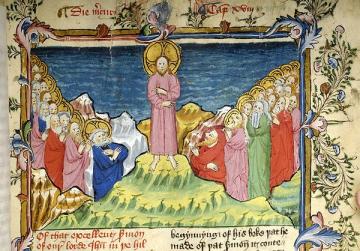 Die mcur
Cap xviij
Of that excellent smon
of our lorde Ihu in þe hil
begynnyng of his boke þat he
made of þat smon it conte